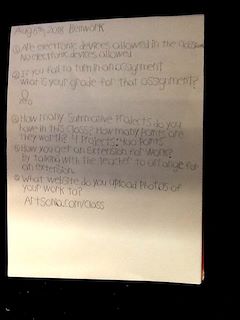 Aug 15th, 2018 Bellwork
① Are electronic devices allowed in the classroom
No electronic devices allowed
② If you fail to turn in an assignment
what is your grade for that assignment?
0
zero
③ How many Summative Projects do you
have in this class? How many points are
they worth? 4 Projects: 400 Points
How you get an extension for work?
by talking with the teacher to arrange for
an extension.
What website do you upload photos of
your work to?
Artsonia.com/class